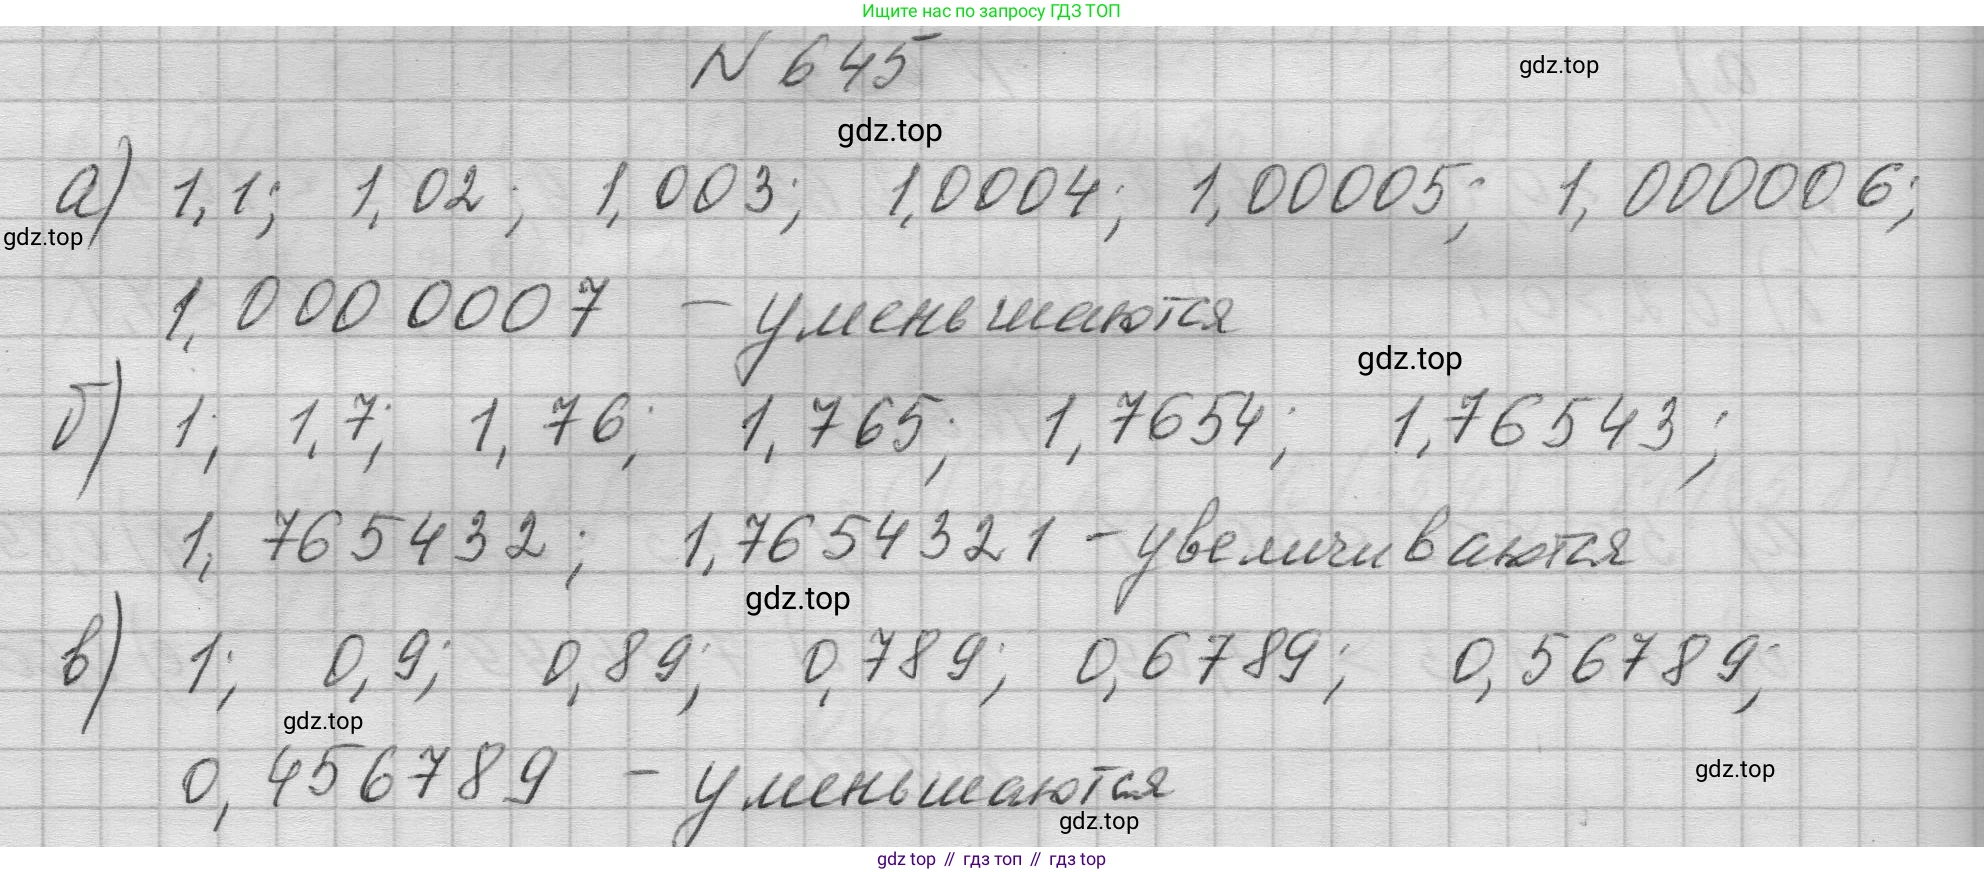 Ищите нас по запросу ГДЗ ТОП
N 645
gdz.top
gdz.top
а) 1,1; 1,02; 1,003; 1,0004; 1,00005; 1,000006;
gdz.top
1,0000007 – уменьшаются
gdz.top
б) 1; 1,7; 1,76; 1,765; 1,7654; 1,76543;
1,765432; 1,7654321 – увеличиваются
gdz.top
в) 1; 0,9; 0,89; 0,789; 0,6789; 0,56789;
gdz.top
0,456789 – уменьшаются
gdz.top
gdz.top
gdz top // гдз топ // гдз top